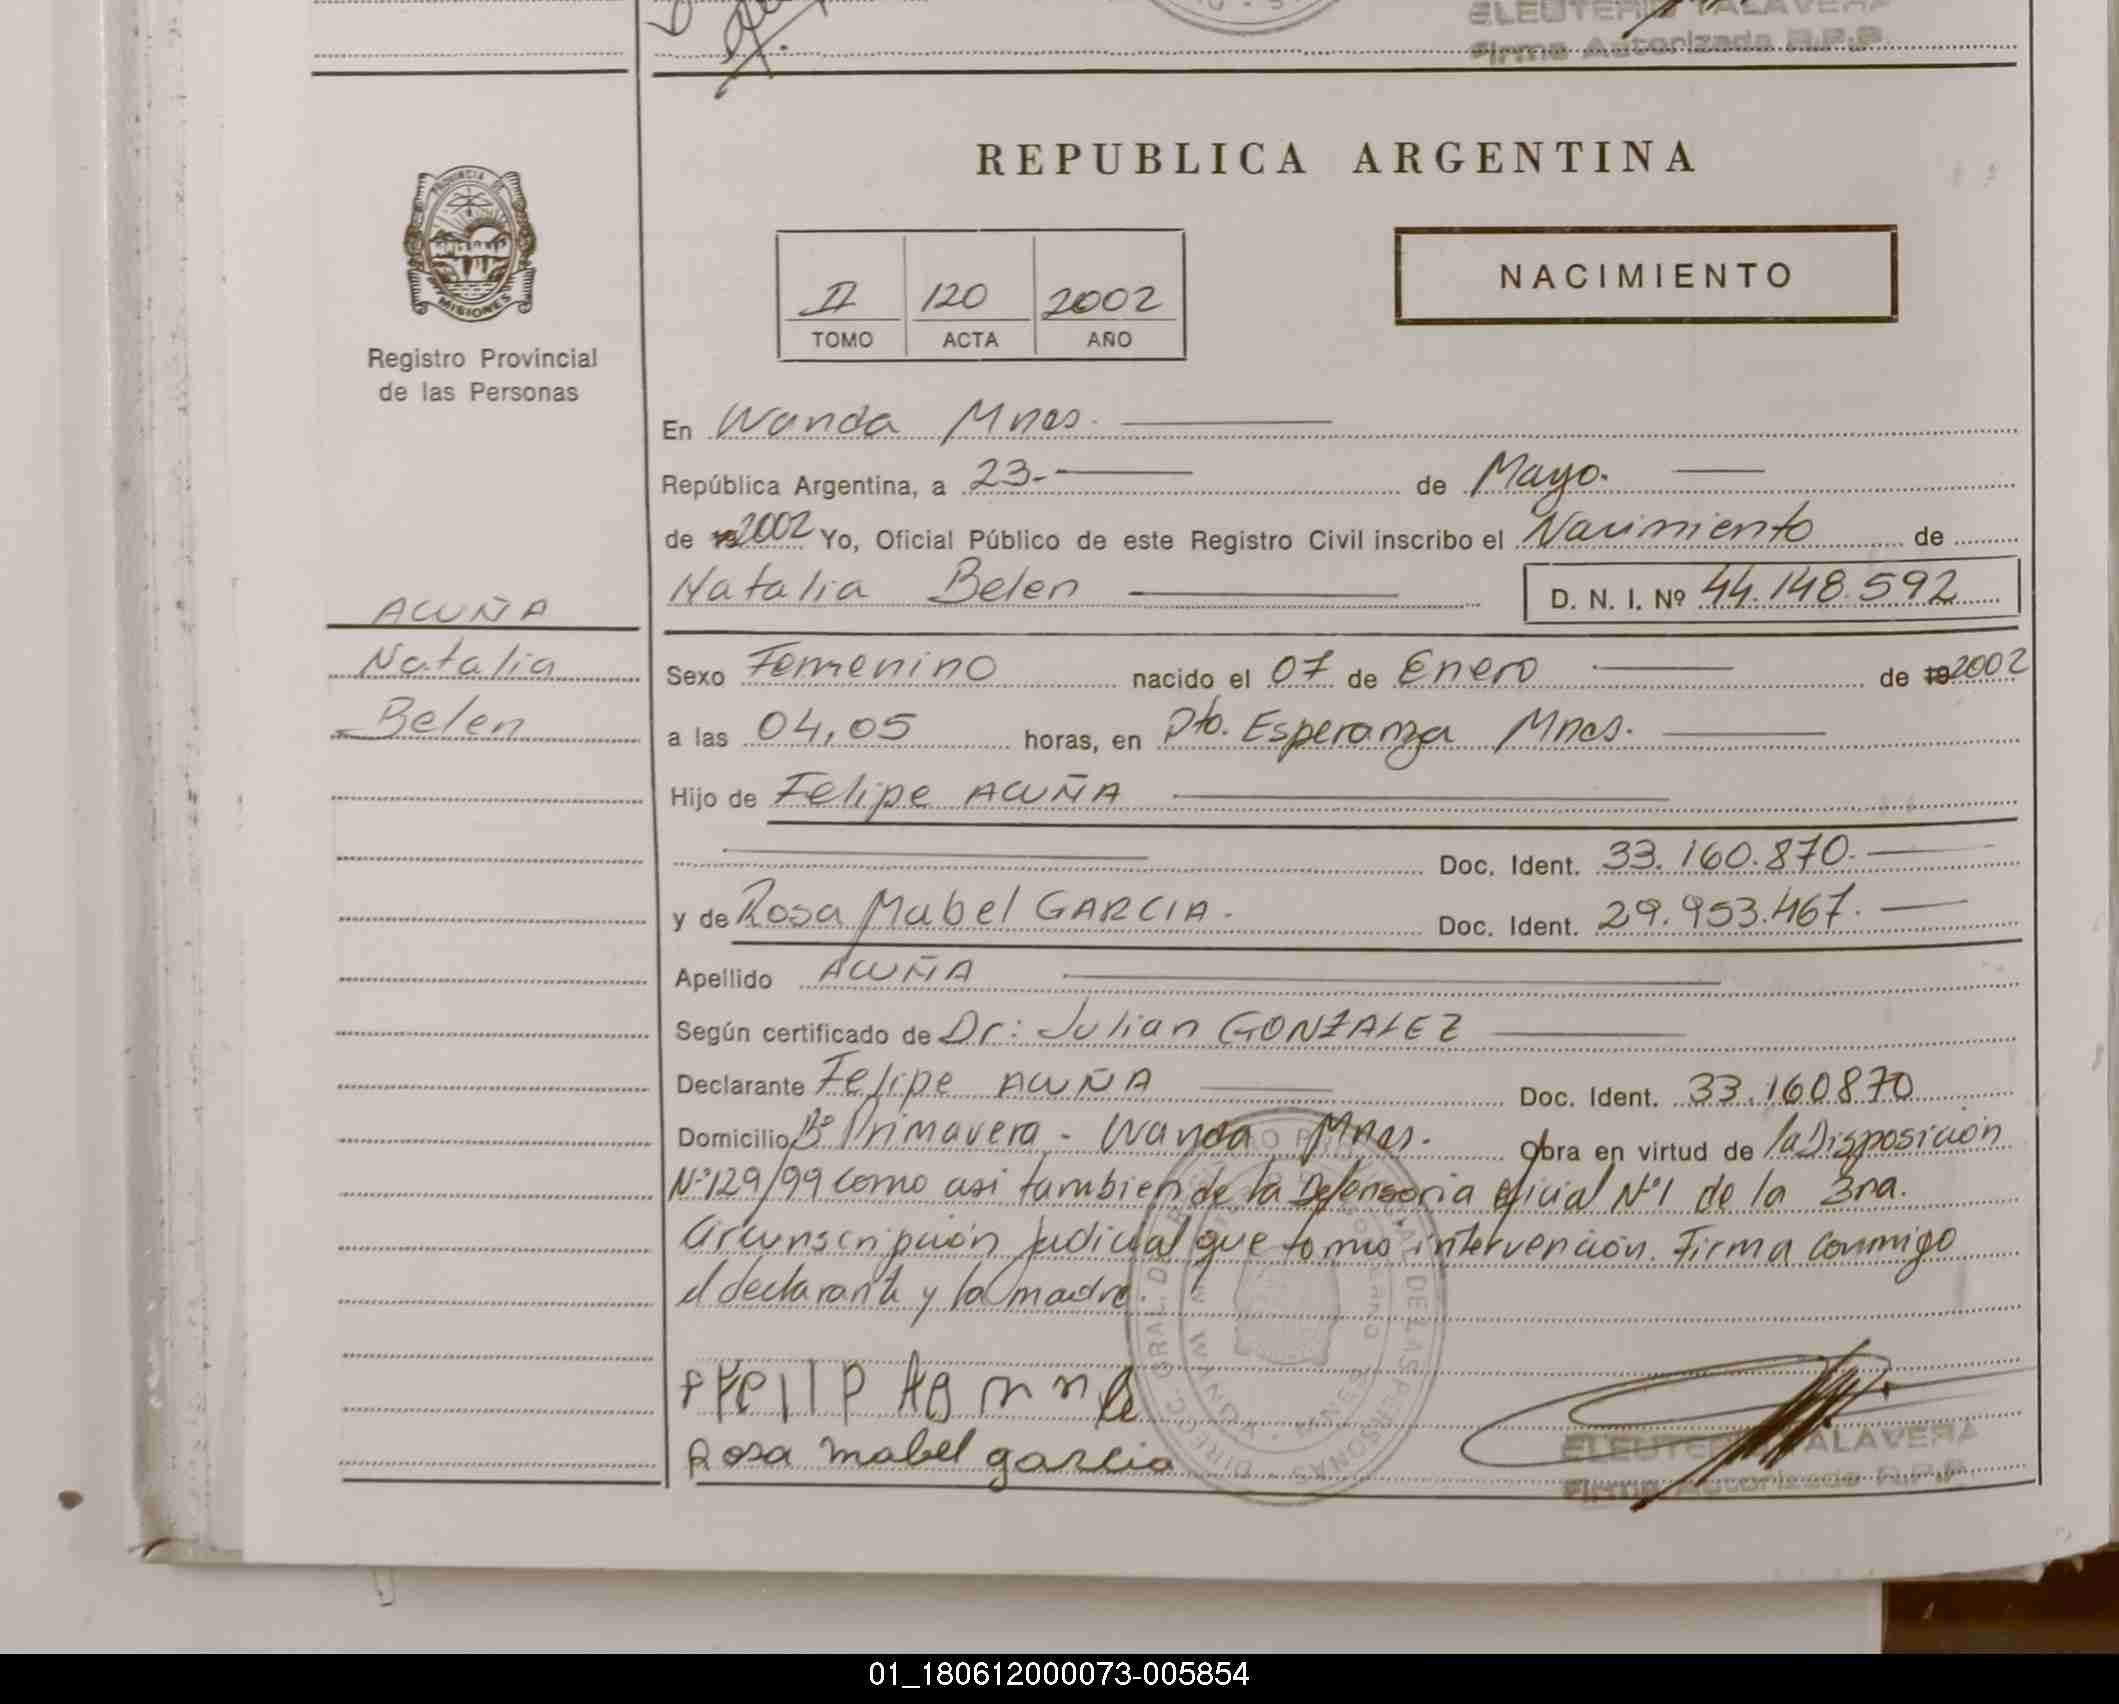 ELEUTERIO TALAVERA
Firma Autorizada R.P.P.
REPUBLICA ARGENTINA
PROVINCIA DE
MISIONES
Registro Provincial
de las Personas
II 120 2002
TOMO ACTA AÑO
NACIMIENTO
En Wanda Mnes.
República Argentina, a 23- de Mayo.
de 19 2002 Yo, Oficial Público de este Registro Civil inscribo el Nacimiento de
Natalia Belen D. N. I. Nº 44.148.592
ACUÑA
Natalia
Belen
Sexo Femenino nacido el 07 de Enero de 19 2002
a las 04,05 horas, en Pto. Esperanza Mnes.
Hijo de Felipe ACUÑA
Doc. Ident. 33.160.870.
y de Rosa Mabel GARCIA. Doc. Ident. 29.953.467.
Apellido ACUÑA
Según certificado de Dr: Julian GONZALEZ
Declarante Felipe ACUÑA Doc. Ident. 33.160870
Domicilio Bº Primavera - Wanda Mnes. Obra en virtud de la Disposición
Nº129/99 como asi tambien de la Defensoria oficial Nº1 de la 3ra.
Circunscripción Judicial que tomo intervención. Firma conmigo
el declarante y la madre.
Rosa mabel garcia
ELEUTERIO TALAVERA
Firma Autorizada R.P.P.
01_180612000073-005854